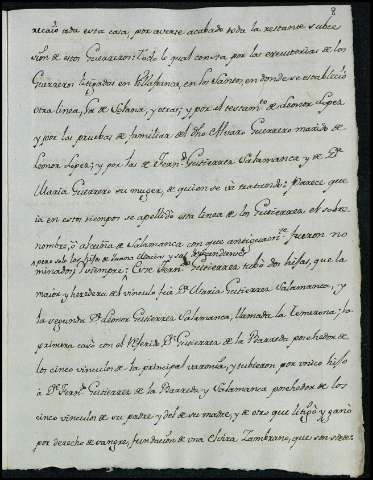 8
recaió toda esta casa, por averse acabado toda la restante subce
sion de estos Guerreros: Todo lo qual consta por las executorias de los
Guerreros litigados en Villafranca, en los Santos, en donde se establecio
otra linea, Fte de Solana, y otras; y por el testamto de Leonor Lopez
y por las pruebas de familiar del dho Alvaro Guerrero marido de
Leonor Lopez; y por las de Ferndo Gutierrez Salamanca y de Da
Maria Guerrero su muger, de quien se ira tratando: Parece que
ia en estos tiempos se apellidó esta linea de los Gutierrez el sobre
nombre, ó alcuña de Salamanca con que antiguamte fueron no
apero solo los hijos de Juana Maria y sus desendientes
minados, siempre: Este Ferndo Gutierrez tubo dos hijas, que la
maior y heredera del vinculo fue Da Maria Gutierrez Salamanca, y
la segunda Da Leonor Gutierrez Salamanca, llamada la Temerona; la
primera casó con el Referido Dn Gutierrez de la Barreda posehedor de
los cinco vinculos de la principal varonia, y tubieron por vnico hijo
á Dn Ferndo Gutierrez de la Barreda y Salamanca posehedor de los
cinco vinculos de su padre y del de su madre, y de otro que litigó y ganó
por derecho de sangre, fundacion de vna Elvira Zambrano, que son siete: